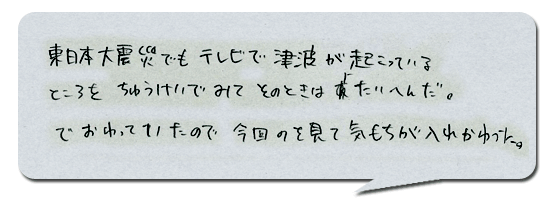 東日本大震災でもテレビで津波が起こっている
ところをちゅうけいでみてそのときはたいへんだ。
でおわっていたので今回のを見て気もちが入れかわった。